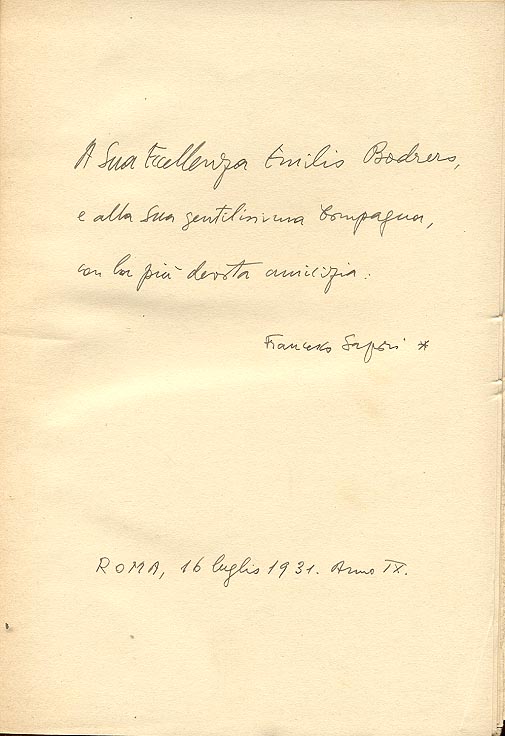 A Sua Eccellenza Emilio Bodrero,
e alla Sua gentilissima Compagna,
con la più devota amicizia.
Francesco Sapori *
ROMA, 16 luglio 1931. Anno IX.